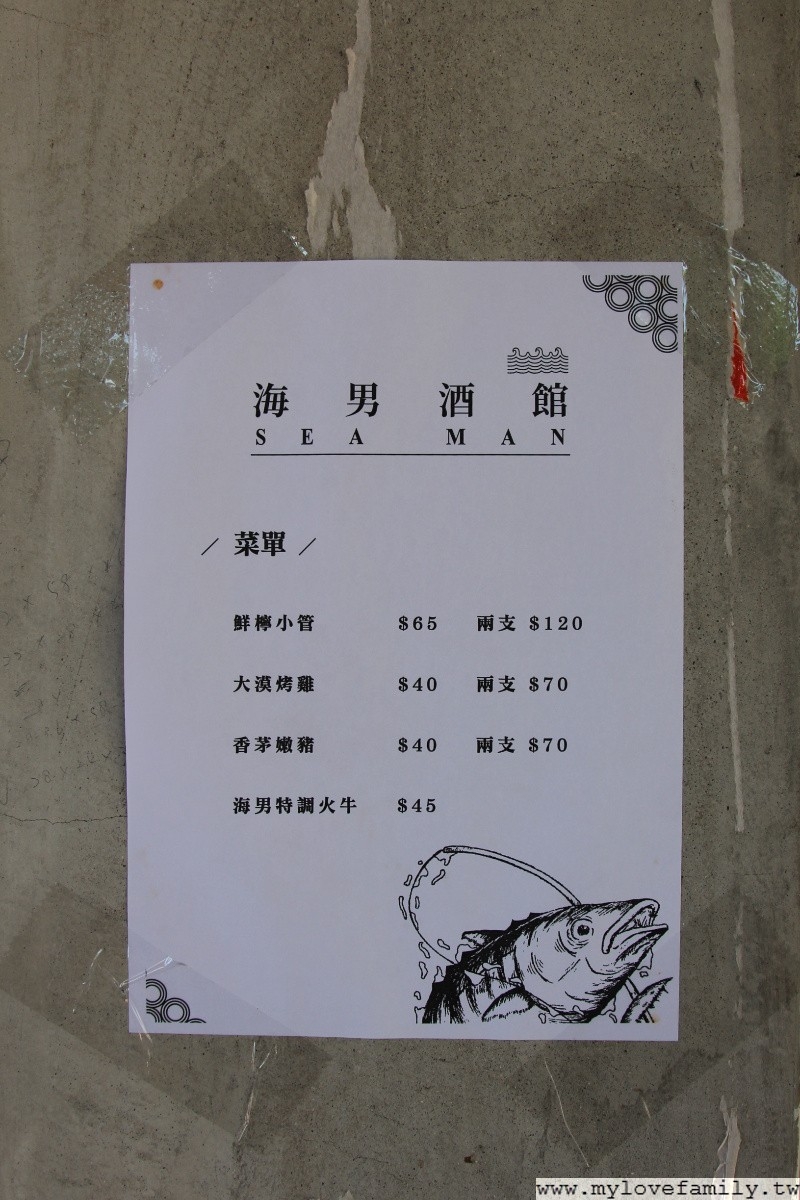 海男酒館
SEA MAN
／ 菜單 ／
鮮檸小管 $65 兩支 $120
大漠烤雞 $40 兩支 $70
香茅嫩豬 $40 兩支 $70
海男特調火牛 $45
www.mylovefamily.tw